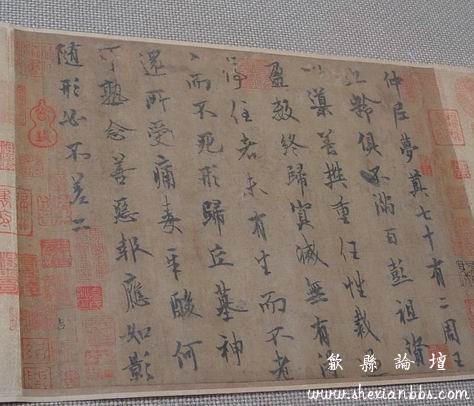 仲尼夢奠七十有二周王
九齡俱不滿百彭祖滋
以導養樊重任性裁過
盈數終歸冥滅無有得
停住者未有生而不老
〻而不死形歸丘墓神
還所受痛毒辛酸何
可熟念善惡報應如影
隨形必不差二
歙縣論壇
www.shexianbbs.com